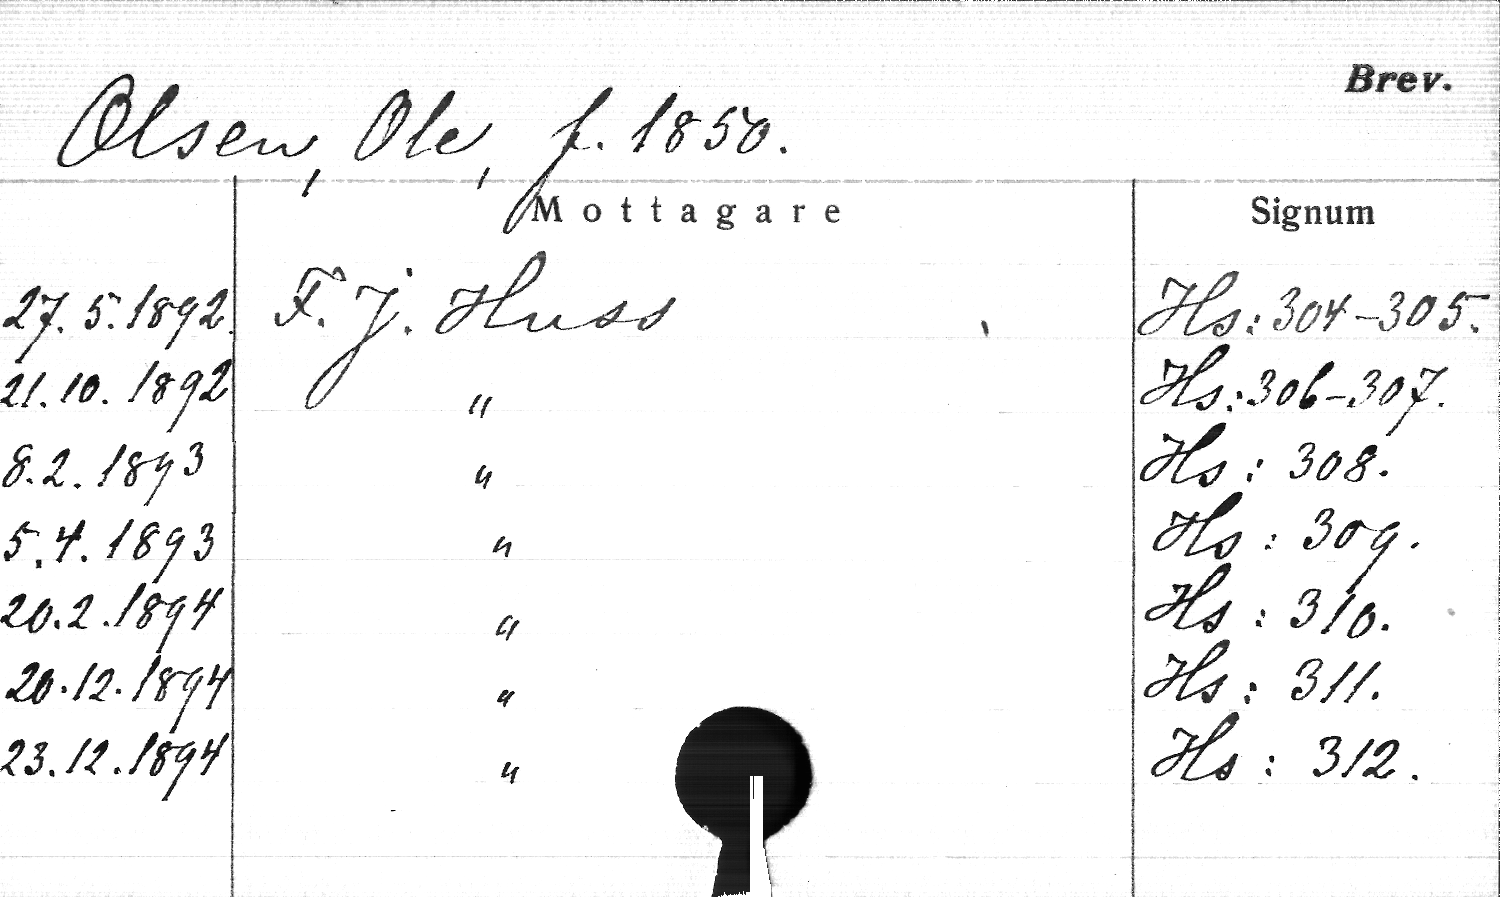 Brev.
Olsen, Ole, f. 1850.
Mottagare Signum
27. 5. 1892. F. J. Huss Hs: 304-305.
21. 10. 1892 " Hs: 306-307.
8. 2. 1893 " Hs: 308.
5. 4. 1893 " Hs: 309.
20. 2. 1894 " Hs: 310.
20. 12. 1894 " Hs: 311.
23. 12. 1894 " Hs: 312.